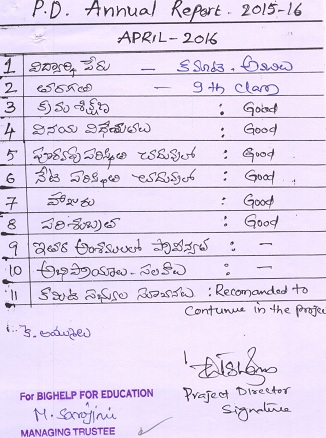 P.D. Annual Report. 2015-16
APRIL - 2016
1 విద్యార్థి పేరు -
2 తరగతి - 9th Class
3 క్రమశిక్షణ : Good
4 వినయ విధేయతలు : Good
5 పూర్వపు పరిస్థితి చదువులో : Good
6 నేటి పరిస్థితి చదువులో : Good
7 హాజరు : Good
8 పరిశుభ్రత : Good
9 ఇతర అంశములలో ప్రావీణ్యత : -
10 అభిప్రాయాలు - సలహాలు : -
11 కమిటి సభ్యుల సూచనలు : Recomanded to
Contunue in the project
Project Director
Signature
For BIGHELP FOR EDUCATION
M. Sarojini
MANAGING TRUSTEE